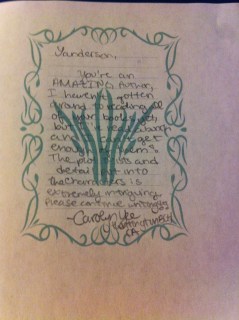 Yanderson,
You're an
AMAZING Author,
I haven't gotten
around to reading all
of your books yet,
but
can't get
enough of them.
The plot and
detail put into
the characters is
extremely intriguing,
Please continue writing
-Carolyn